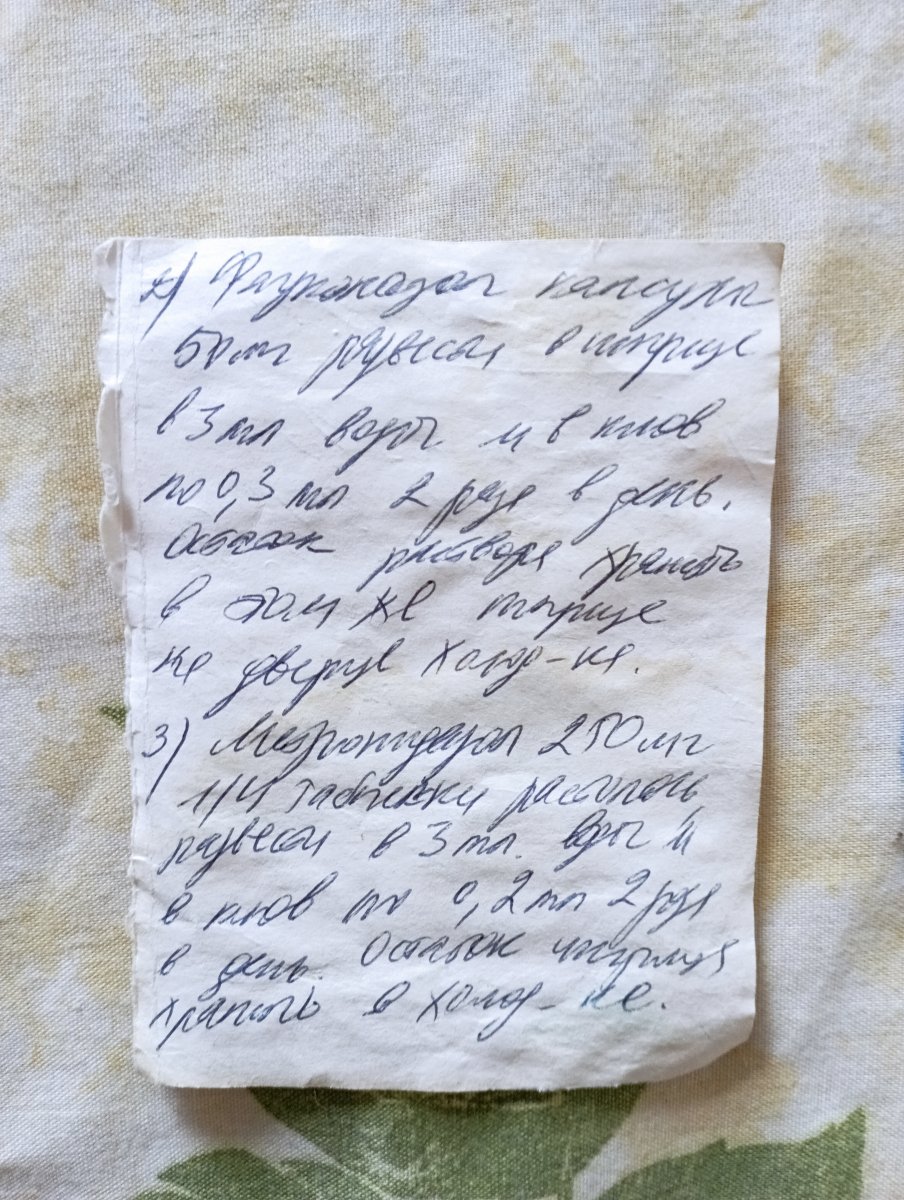 2) Флуконазол капсулы
50 мг развести в шприце
в 3 мл воды и в клюв
по 0,3 мл 2 раза в день.
Остаток раствора хранить
в том же шприце
на дверце холод-ка.
3) Метронидазол 250 мг
1/4 таблетки растолочь
развести в 3 мл. воды и
в клюв по 0,2 мл 2 раза
в день. Остаток шприца
хранить в холод-ке.